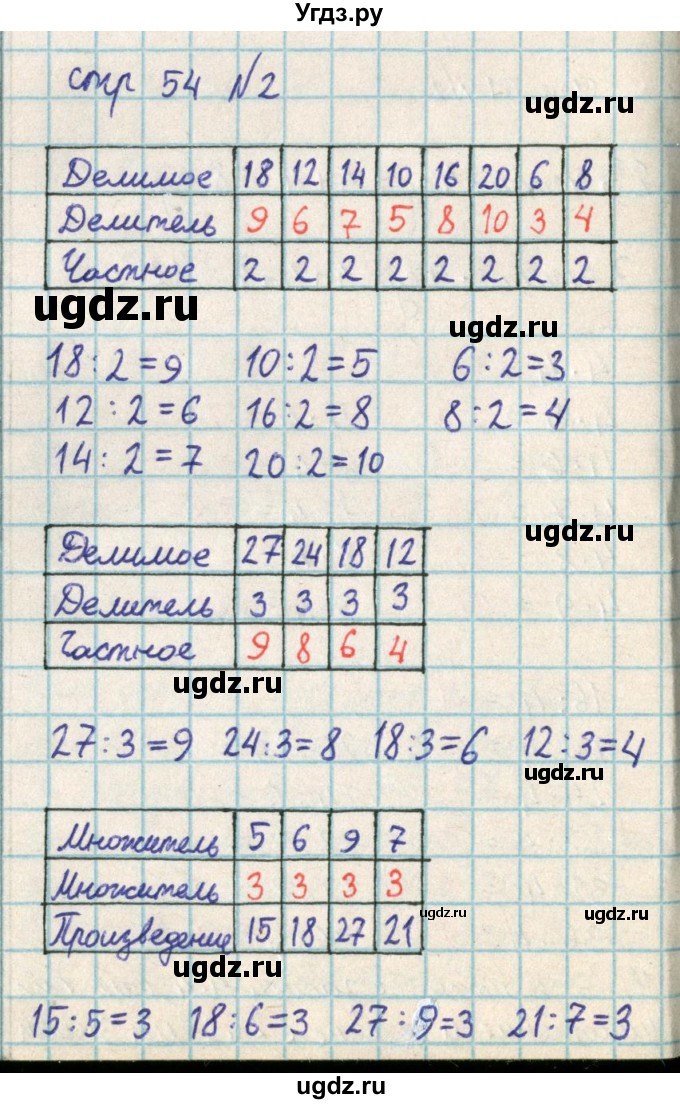 Угдз.ру
стр 54 №2
ugdz.ru
Делимое 18 12 14 10 16 20 6 8
Делитель 9 6 7 5 8 10 3 4
Частное 2 2 2 2 2 2 2 2
ugdz.ru
ugdz.ru
18:2=9 10:2=5 6:2=3
12:2=6 16:2=8 8:2=4
14:2=7 20:2=10
ugdz.ru
Делимое 27 24 18 12
Делитель 3 3 3 3
Частное 9 8 6 4
ugdz.ru
27:3=9 24:3=8 18:3=6 12:3=4
ugdz.ru
Множитель 5 6 9 7
Множитель 3 3 3 3
ugdz.ru
ugdz.ru
Произведение 15 18 27 21
ugdz.ru
15:5=3 18:6=3 27:9=3 21:7=3
ugdz.ru